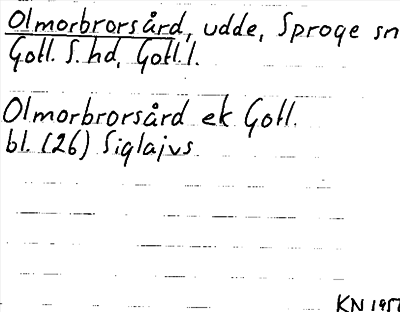 Olmorbrorsård, udde, Sproge sn
Gotl. S. hd, Gotl. l.
Olmorbrorsård ek Gotl.
bl. (26) Siglajvs
KN 195